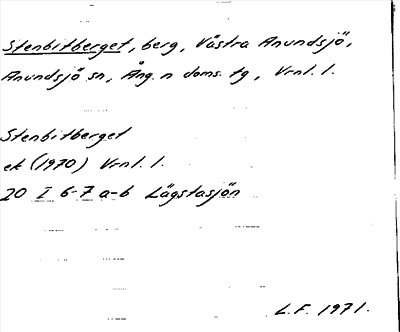 Stenbitberget, berg, Västra Anundsjö,
Anundsjö sn, Ång. n doms. tg, Vrnl. l.
Stenbitberget
ek (1970) Vrnl. l.
20 I 6-7 a-b Lägstasjön
L.F. 1971.